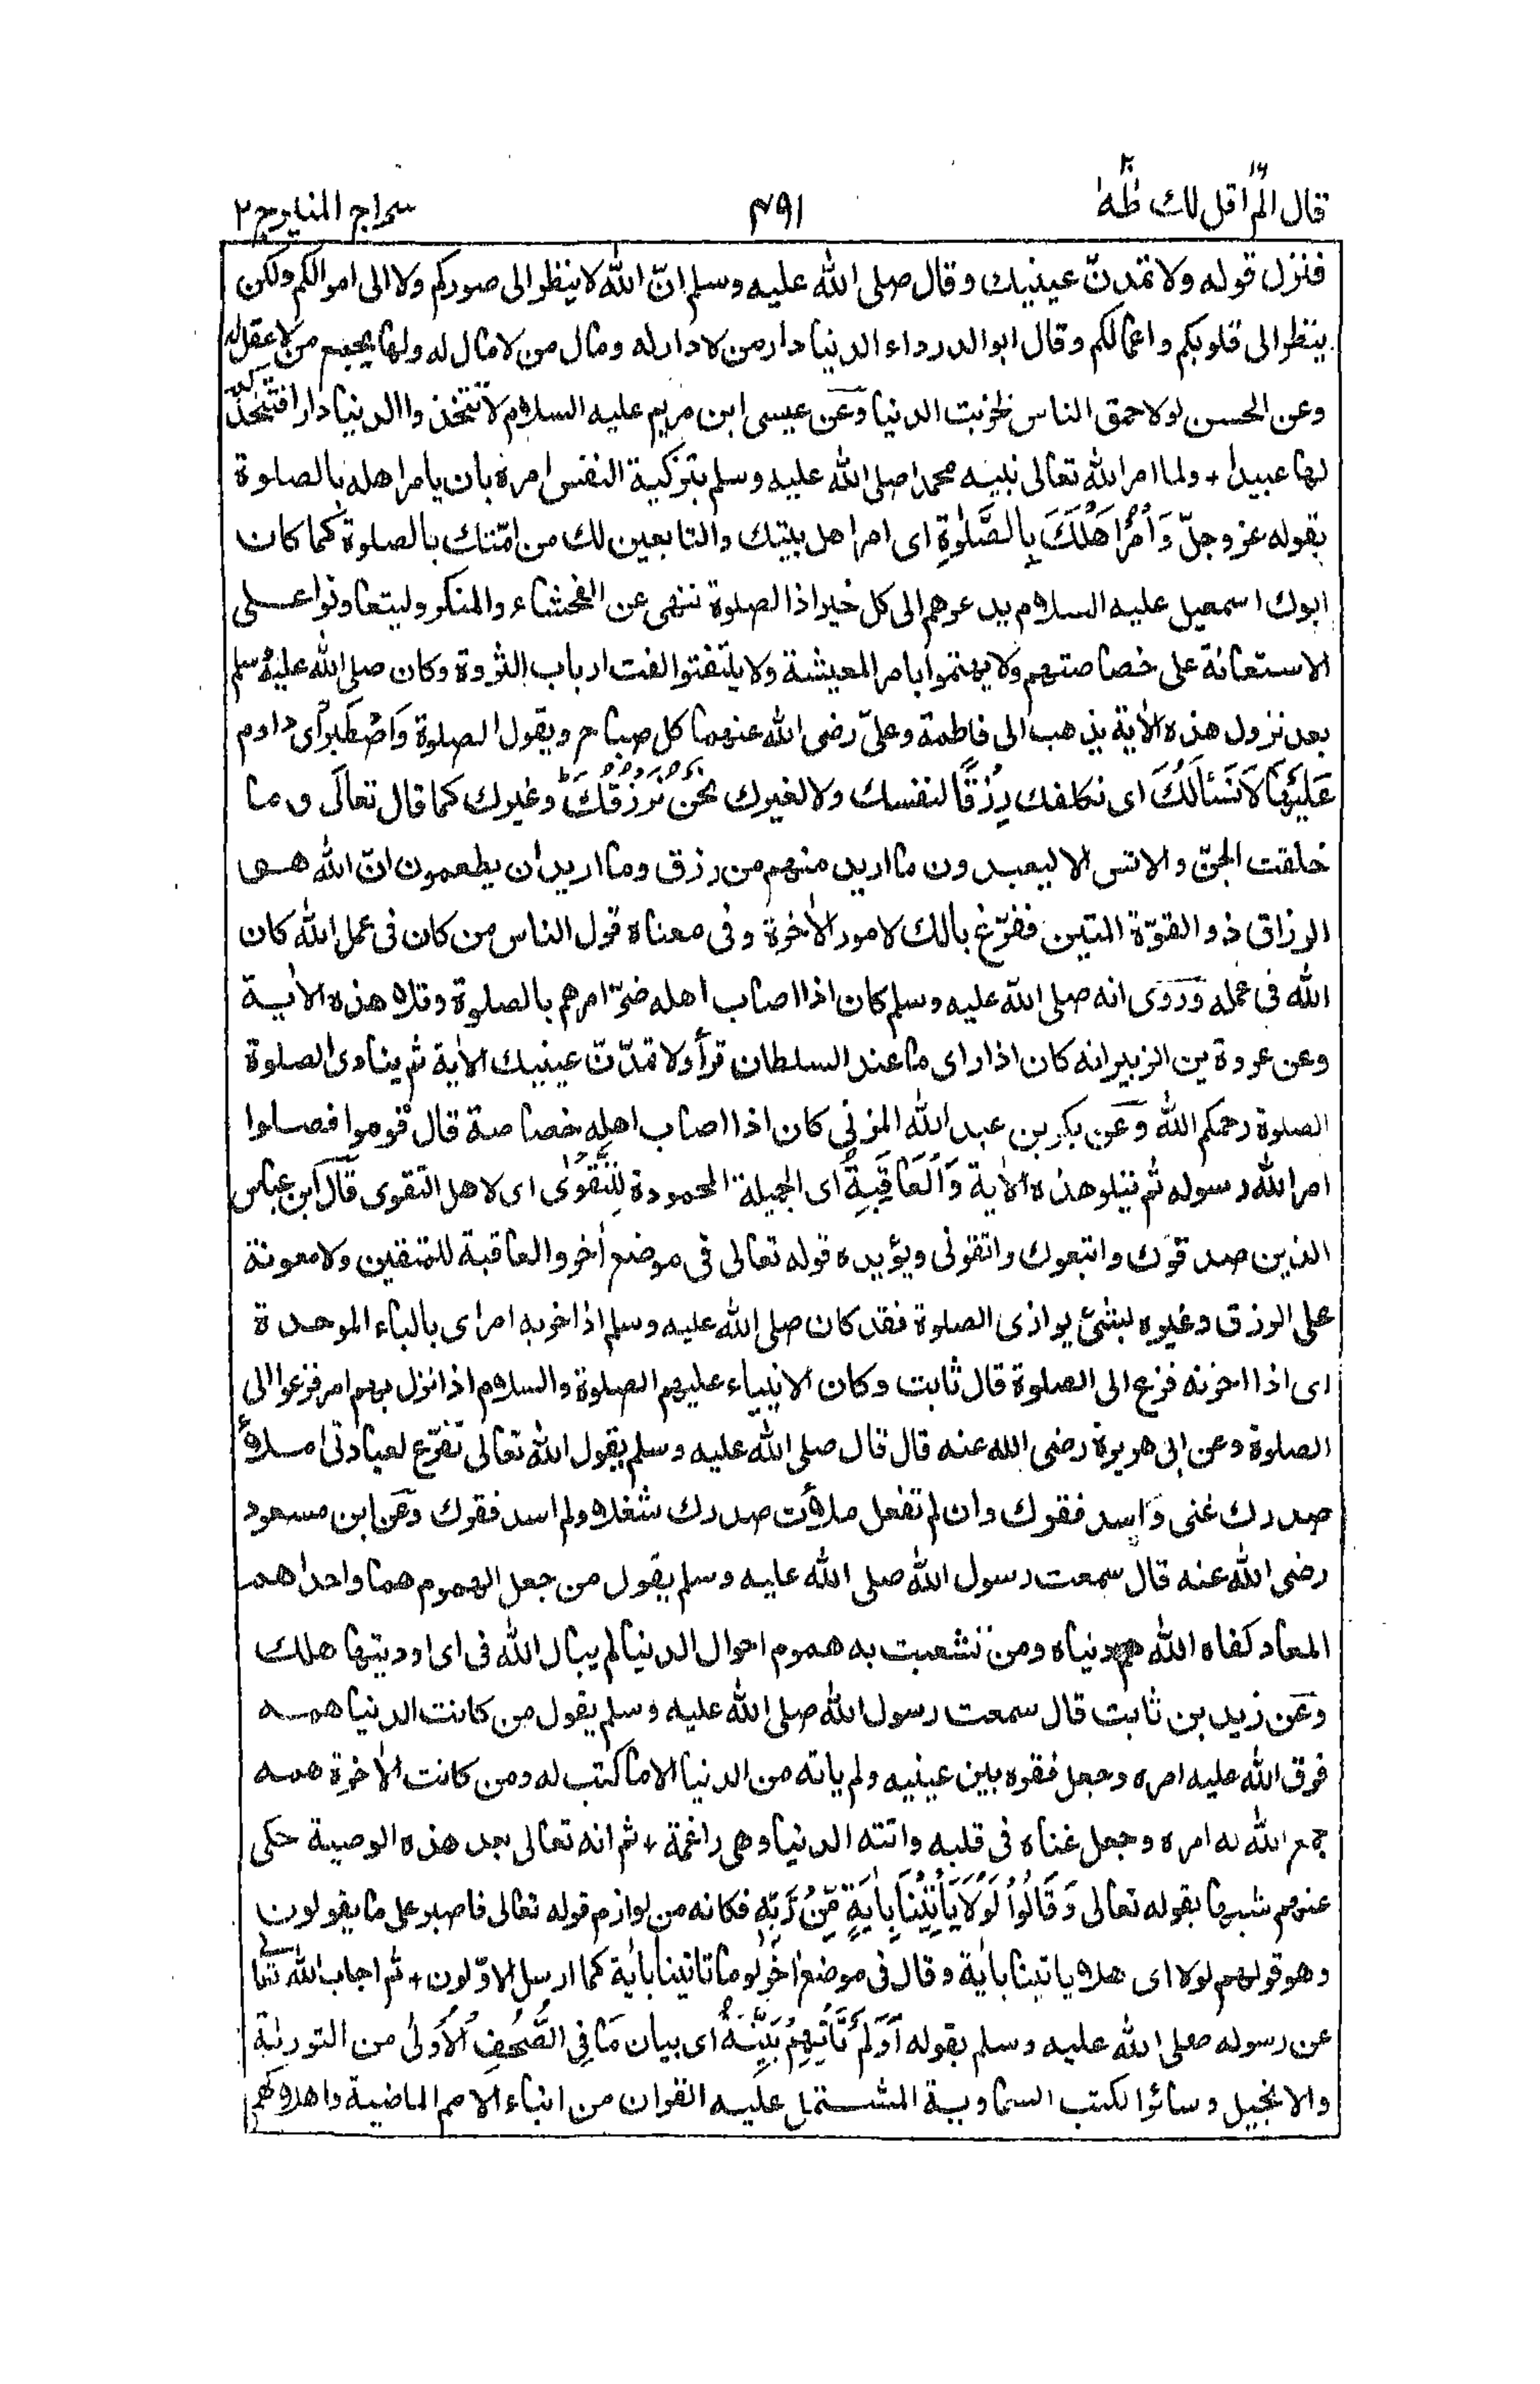 قال الم اقل لك ١٦ طٰهٰ ٢٠
٤٩١
سراج المنير ج ٢
فنزل قوله ولا تمدنّ عينيك وقال صلى الله عليه وسلم انّ الله لا ينظر الى صوركم ولا الى اموالكم ولكن
ينظر الى قلوبكم واعمالكم وقال ابو الدرداء الدنيا دار من لا دار له ومال من لا مال له ولها يجمع من لا عقل له
وعن الحسن لولا حمق الناس لخربت الدنيا وعن عيسى ابن مريم عليه السلام لا تتخذوا الدنيا دارا فتتخذكم
لها عبيدا + ولما امر الله تعالى نبيه محمدا صلى الله عليه وسلم بتزكية النفس امره بان يامر اهله بالصلوة
بقوله عز وجلّ وَأْمُرْ اَهْلَكَ بِالصَّلٰوةِ اى امر اهل بيتك والتابعين لك من امّتك بالصلوة كما كان
ابوك اسمعيل عليه السلام يدعوهم الى كل خير اذ الصلوة تنهى عن الفحشاء والمنكر وليتعاونوا على
الاستعانة على خصاصتهم ولا يهتموا بامر المعيشة ولا يلتفتوا لفت ارباب الثروة وكان صلى الله عليه وسلم
بعد نزول هذه الاٰية يذهب الى فاطمة وعلىّ رضى الله عنهما كل صباح ويقول الصلوة وَاصْطَبِرْ اى داوم
عَلَيْهَا لَا نَسْئَلُكَ اى نكلفك رِزْقًا لنفسك ولا لغيرك نَحْنُ نَرْزُقُكَ وغيرك كما قال تعالى وما
خلقت الجنّ والانس الا ليعبدون ما اريد منهم من رزق وما اريد ان يطعمون انّ الله هو
الرزاق ذو القوّة المتين ففرّغ بالك لامور الاٰخرة وفى معناه قول الناس من كان فى عمل الله كان
الله فى عمله وروى انه صلى الله عليه وسلم كان اذا اصاب اهله ضرّ امرهم بالصلوة وتلا هذه الاٰية
وعن عروة بن الزبير انه كان اذا راى ما عند السلطان قرأ ولا تمدّنّ عينيك الاٰية ثم ينادى الصلوة
الصلوة رحمكم الله وعن بكر بن عبد الله المزنى كان اذا اصاب اهله خصاصة قال قوموا فصلوا
امر الله رسوله ثم يتلو هذه الاٰية وَالْعَاقِبَةُ اى الجميلة المحمودة لِلتَّقْوٰى اى لاهل التقوى قال ابن عباس
الذين صدقوك واتبعوك واتقونى ويؤيده قوله تعالى فى موضع اٰخر والعاقبة للمتقين ولا معونة
على الرزق وغيره لبشئ يوازى الصلوة فقد كان صلى الله عليه وسلم اذا خربه امر اى بالباء الموحدة
اى اذا احزنه فزع الى الصلوة قال ثابت وكان الانبياء عليهم الصلوة والسلام اذا نزل بهم امر فزعوا الى
الصلوة وعن ابى هريرة رضى الله عنه قال قال صلى الله عليه وسلم يقول الله تعالى تفرّغ لعبادتى املأ
صدرك غنى واسد فقرك وان لم تفعل ملأت صدرك شغلا ولم اسد فقرك وعن ابن مسعود
رضى الله عنه قال سمعت رسول الله صلى الله عليه وسلم يقول من جعل الهموم هما واحدا هم
المعاد كفاه الله هم دنياه ومن تشعبت به هموم احوال الدنيا لم يبال الله فى اى اوديتها هلك
وعن زيد بن ثابت قال سمعت رسول الله صلى الله عليه وسلم يقول من كانت الدنيا همه
فرق الله عليه امره وجعل فقره بين عينيه ولم ياته من الدنيا الا ما كتب له ومن كانت الاٰخرة همه
جمع الله له امره وجعل غناه فى قلبه واتته الدنيا وهى راغمة + ثم انه تعالى بعد هذه الوصية حكى
عنهم شبها بقوله تعالى وَقَالُوْا لَوْلَا يَأْتِيْنَا بِاٰيَةٍ مِّنْ رَّبِّهٖ فكانه من لوازم قوله تعالى فاصبر على ما يقولون
وهو قولهم لولا اى هلا ياتينا باٰية وقال فى موضع اٰخر لوما تاتينا باٰية كما ارسل الاوّلون + ثم اجاب الله تعالى
عن رسوله صلى الله عليه وسلم بقوله اَوَلَمْ تَأْتِهِمْ بَيِّنَةُ اى بيان مَا فِى الصُّحُفِ الْاُوْلٰى من التورىٰة
والانجيل وسائر الكتب السماوية المشتمل عليه القران من انباء الامم الماضية واهلاكهم